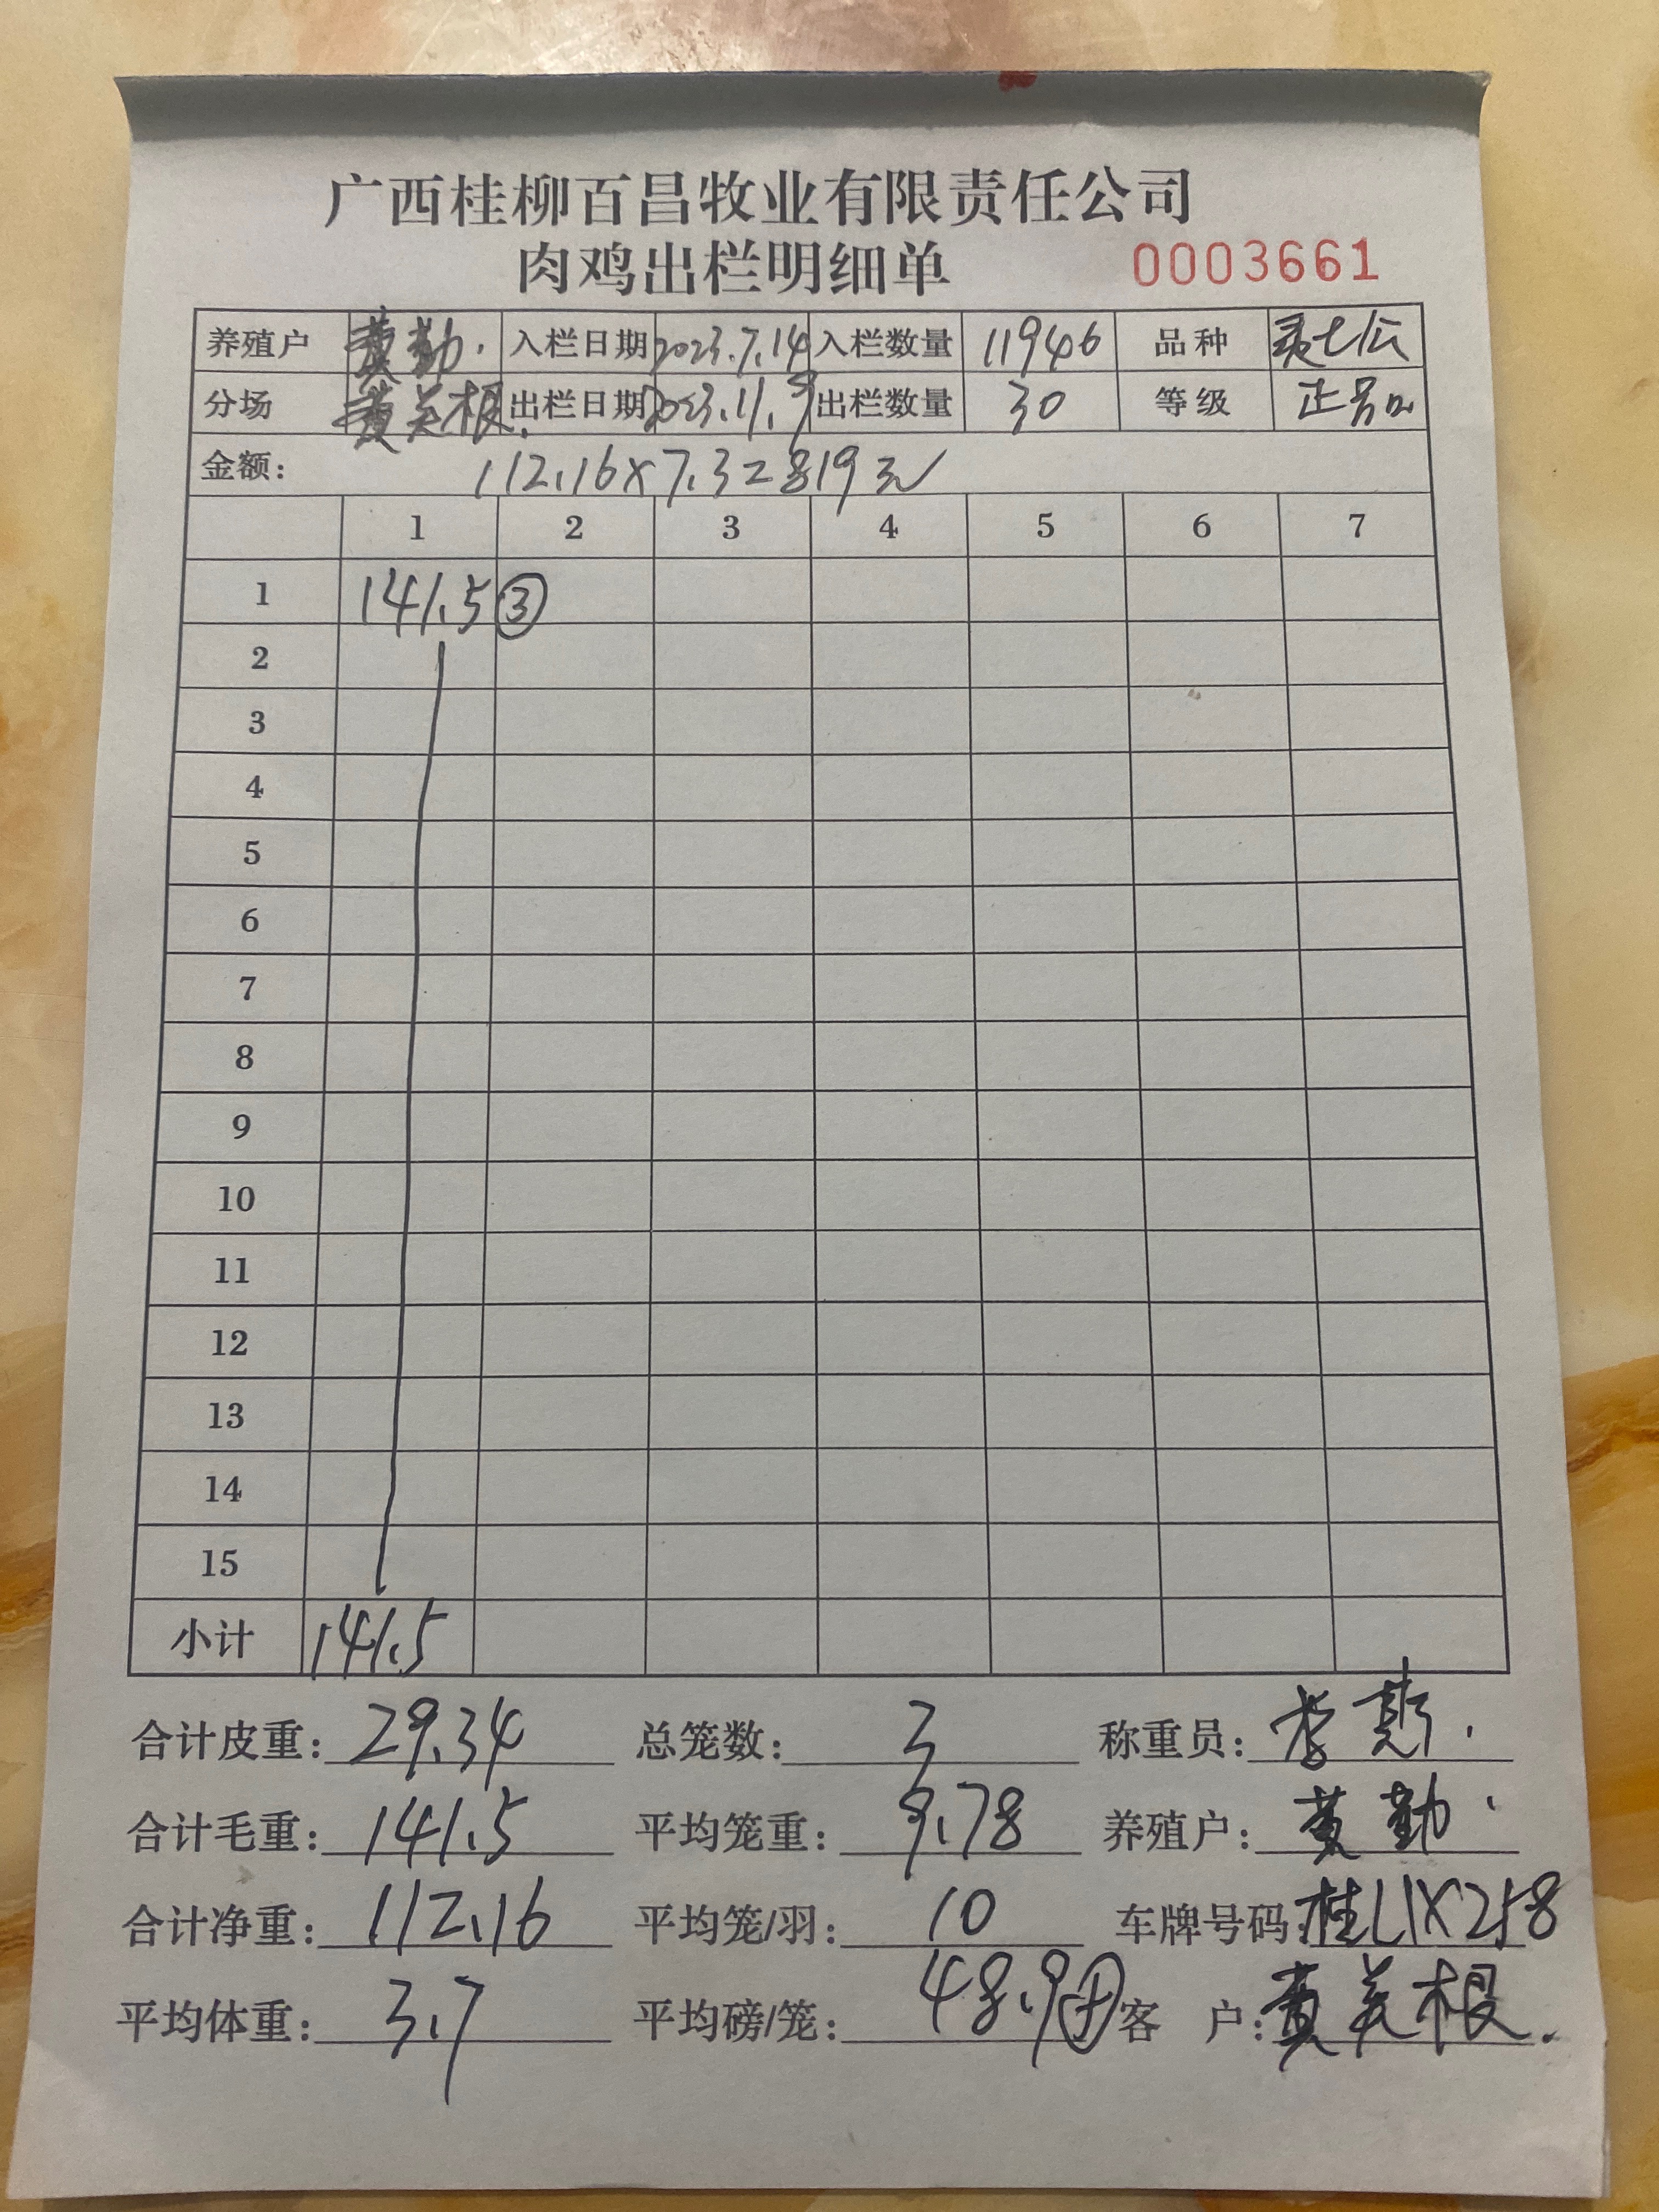 广西桂柳百昌牧业有限责任公司
肉鸡出栏明细单 0003661
养殖户 黄勤 入栏日期 2023.7.14 入栏数量 11946 品种
分场 黄美根 出栏日期 2023.11.9 出栏数量 30 等级 正品
金额: 112.16x7.3=819元
1 2 3 4 5 6 7
1 141.5 ③
2
3
4
5
6
7
8
9
10
11
12
13
14
15
小计 141.5
合计皮重: 29.34 总笼数: 3 称重员: 李
合计毛重: 141.5 平均笼重: 9.78 养殖户: 黄勤
合计净重: 112.16 平均笼/羽: 10 车牌号码: 桂L1X258
平均体重: 3.7 平均磅/笼: 48.9 客 户: 黄美根